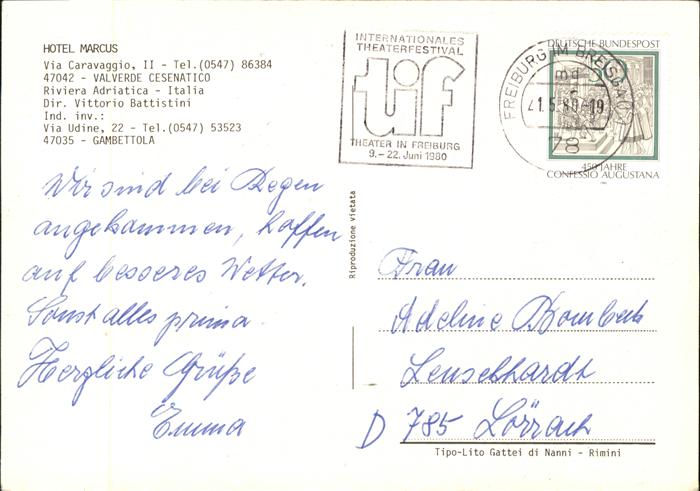 HOTEL MARCUS
Via Caravaggio, II - Tel.(0547) 86384
47042 - VALVERDE CESENATICO
Riviera Adriatica - Italia
Dir. Vittorio Battistini
Ind. inv.:
Via Udine, 22 - Tel.(0547) 53523
47035 - GAMBETTOLA
INTERNATIONALES
THEATERFESTIVAL
tif
THEATER IN FREIBURG
9.-22. Juni 1980
FREIBURG IM BREISGAU
md
21.5.80-19
78
DEUTSCHE BUNDESPOST
450 JAHRE
CONFESSIO AUGUSTANA
Wir sind bei Regen
angekommen, hoffen
auf besseres Wetter.
Sonst alles prima.
Herzliche Grüße
Emma
Riproduzione vietata
Frau
Adeline
D 785 Lörrach
Tipo-Lito Gattei di Nanni - Rimini